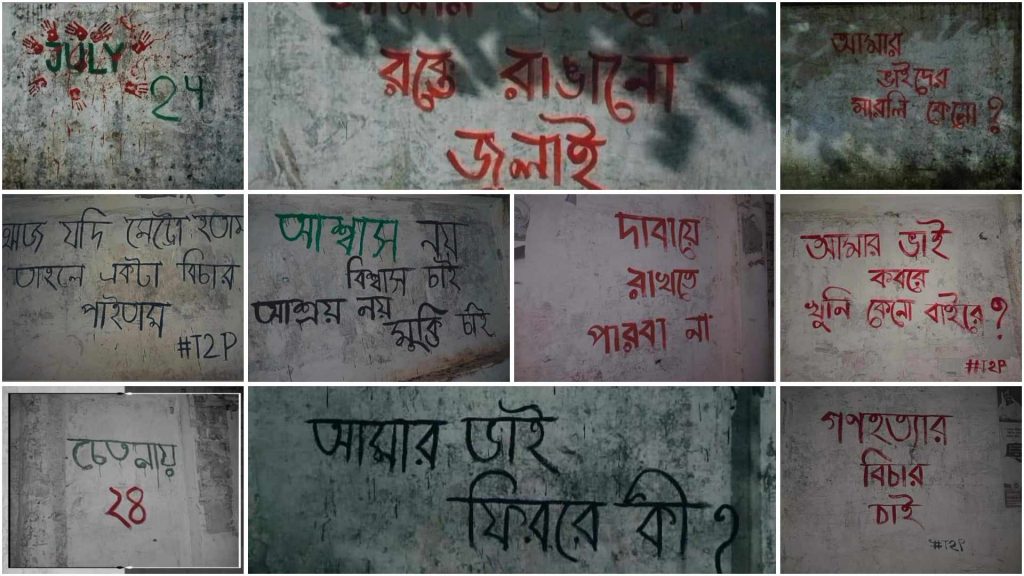 JULY
24
আমার ভাইদের
রক্তে রাঙানো
জুলাই
আমার
ভাইদের
মারলি কেনো?
আজ যদি মেট্রো হতাম
তাহলে একটা বিচার
পাইতাম
#T2P
আশ্বাস নয়
বিশ্বাস চাই
আশ্রয় নয়
মুক্তি চাই
দাবায়ে
রাখতে
পারবা না
আমার ভাই
কবরে
খুনি কেনো বাইরে?
#T2P
চেতনায়
২৪
আমার ভাই
ফিরবে কী?
গণহত্যার
বিচার
চাই
#T2P